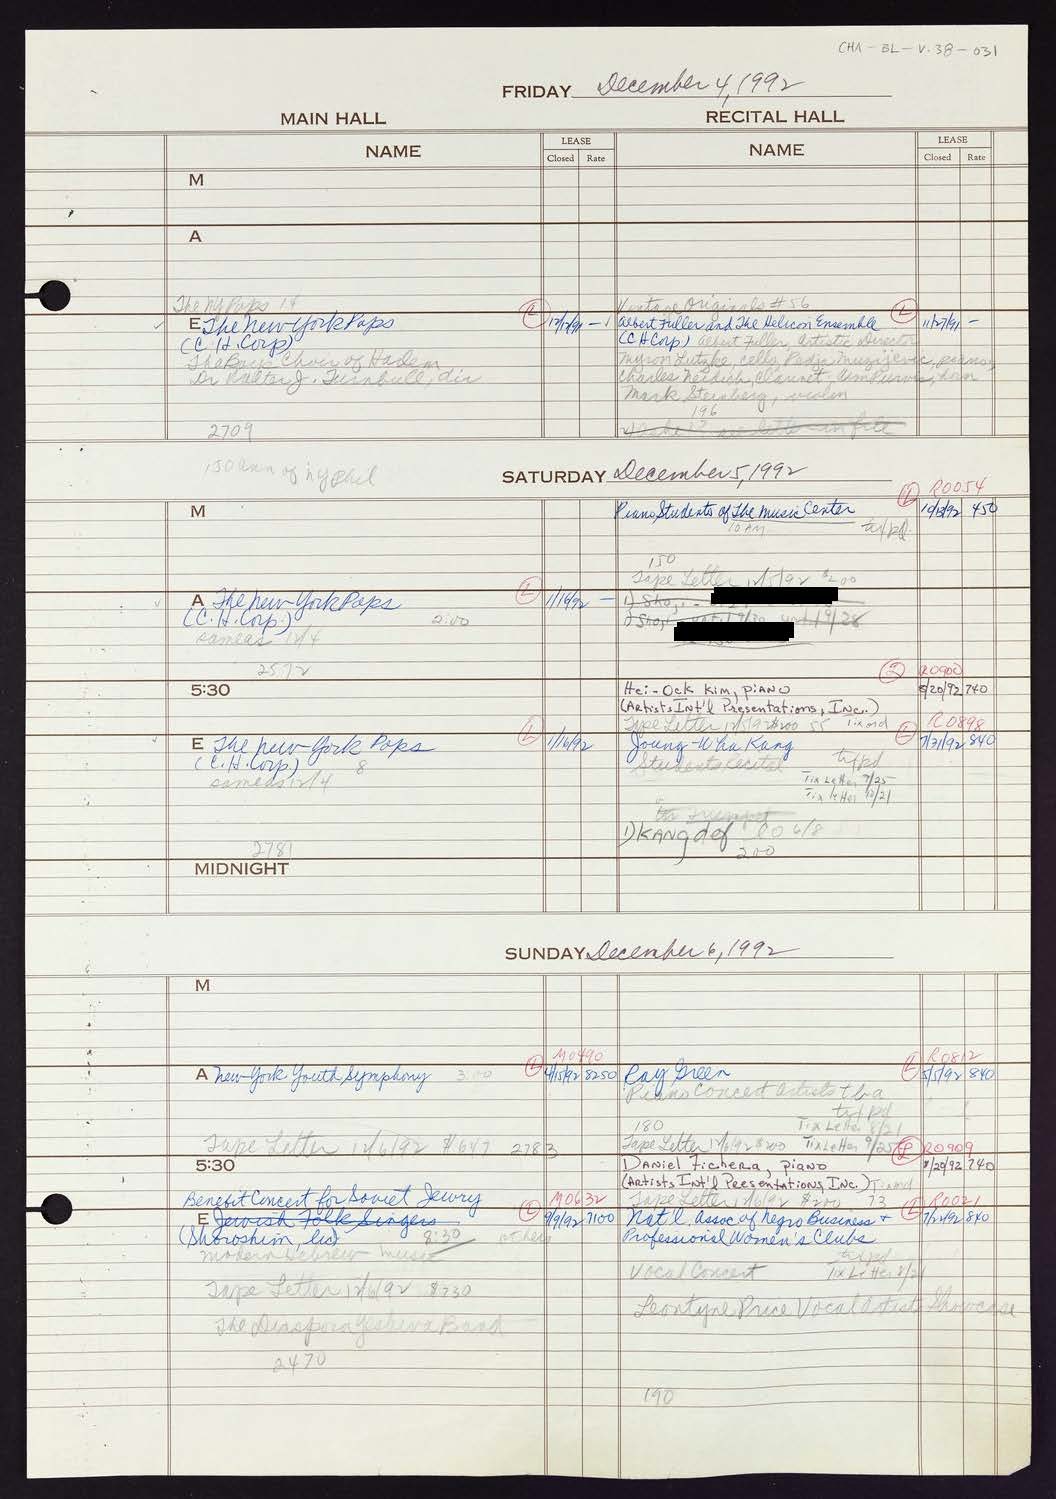 CHA-BL-V.38-031
FRIDAY December 4, 1992
MAIN HALL
RECITAL HALL
NAME
LEASE
Closed Rate
NAME
LEASE
Closed Rate
M
A
The NY Pops 14
E The New York Pops
(C.H. Corp)
L 12/17/91 —
The Boys Choir of Harlem
Dr Walter J. Turnbull, dir
2709
Vintage Originals #56
Albert Fuller and The Helicon Ensemble
L 11/27/91 —
(C H Corp) Albert Fuller, Artistic Director
Myron Lutzke, cello, Pedja Muzijevic, piano,
Charles Neidich, Clarinet, horn
Mark Steinberg, violin
196
see letter in file
150 ann of NY Phil
SATURDAY December 5, 1992
M
Piano Students of The Music Center
L R0054
10/13/92 450
10 AM
tx/pd
150
Tape Letter 12/5/92 $200
A The New York Pops
L 1/16/92 —
(C.H. Corp.)
2:00
same as 12/4
2572
5:30
Hei-Ock Kim, piano
R0900
8/20/92 740
(Artists Int'l Presentations, Inc.)
Tape Letter 12/5/92 $200 55
E The New York Pops
L 1/16/92
(C.H. Corp.) 8
same as 12/4
2781
Young-Wha Kang
L R0898
7/31/92 840
Students recital
tx/pd
Tix Letter 9/25
Tix letter 10/21
1) KANG def LO 6/8
200
MIDNIGHT
SUNDAY December 6, 1992
M
A New York Youth Symphony 3:00
L M0490
4/15/92 8250
Tape Letter 12/6/92 $647 2783
Ray Green
L R0812
5/5/92 840
Piano Concert Artists tba
tx/pd
180
Tix Letter 8/21
Tape Letter 12/6/92 $200 Tix Letter 9/25
5:30
Daniel Fichera, piano
L R0909
8/20/92 740
(Artists Int'l Presentations, Inc.)
Tape Letter 12/6/92 $200 73
Benefit Concert for Soviet Jewry
E Jewish Folk Singers
L M0632
9/9/92 7100
(Shoroshim, Inc) 8:30
modern Hebrew music
Tape Letter 12/6/92 $730
The Diaspora Yeshiva Band
2470
Nat'l. Assoc of Negro Business +
L R0021
7/22/92 840
Professional Women's Clubs
tx/pd
Vocal Concert Tix Letter 8/21
Leontyne Price Vocal Artists Showcase
190